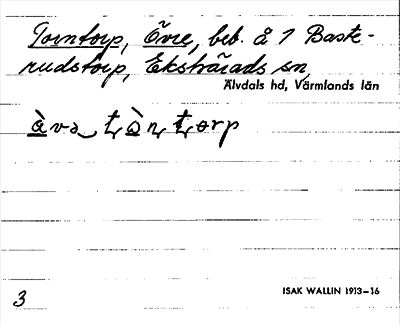 Torntorp, Övre, beb. å 7 Baste-
rudstorp, Ekshärads sn,
Älvdals hd, Värmlands län
àvə tɷ̀n torp
3
ISAK WALLIN 1913–16